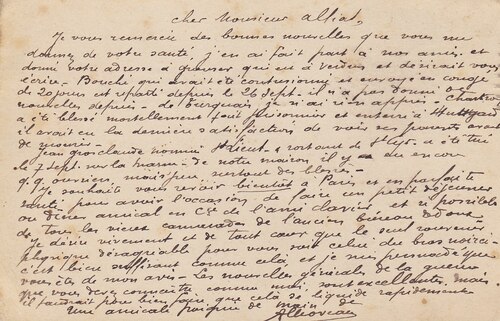 cher Monsieur Alliot,
Je vous remercie des bonnes nouvelles que vous me
donnez de votre santé, j'en ai fait part à nos amis, et
donné votre adresse à qui est à Verdun et désirait vous
écrire - Bouché qui avait été contusionné et envoyé en congé
de 20 jours est reparti depuis le 26 sept. il n'a pas donné de
nouvelles depuis - de je n'ai rien appris -
a été blessé mortellement fait prisonnier et enterré à
il avait eu la dernière satisfaction de voir ses parents avant
de mourir -
Jean Grosclaude nommé S/Lieut. sortant de St Cyr, a été tué
le 7 sept. sur la Marne - de notre maison il y en a eu encore
q.q. ouvriers, mais peu surtout des blessés -
Je souhaite vous revoir bientôt à Paris et en parfaite
santé, pour avoir l'occasion de faire un petit déjeuner
ou dîner amical en Cie de l'ami Clavier, et si possible
de tous les vieux camarades de l'ancien bureau
Je désire vivement et de tout cœur que le seul souvenir
physique désagréable pour vous soit celui du bras
c'est bien suffisant comme cela et je me persuade que
vous êtes de mon avis - Les nouvelles générales de la guerre
que vous devez connaître comme moi, sont excellentes, mais
il faudrait pour bien faire, que cela se liquide rapidement
Une amicale poignée de main de